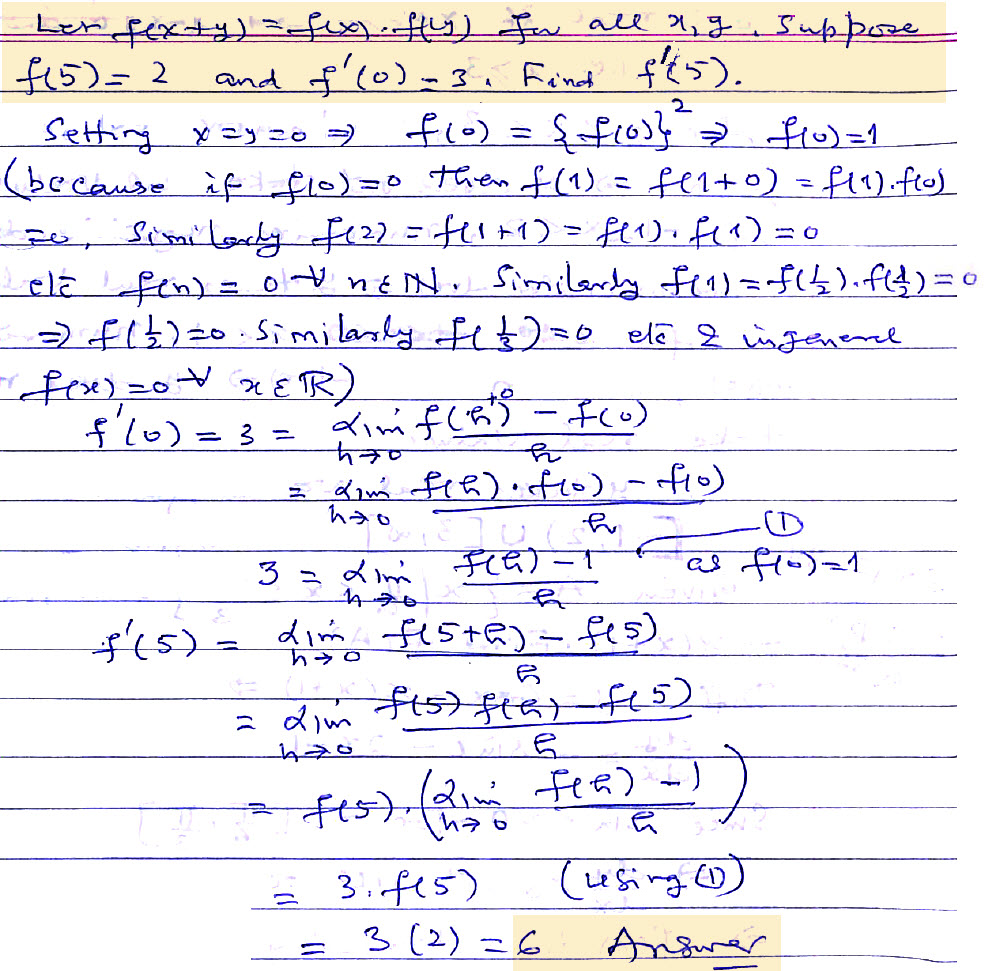 Let f(x+y) = f(x).f(y) for all x,y. Suppose
f(5) = 2 and f'(0) = 3. Find f'(5).
Setting x=y=0 ⇒ f(0) = {f(0)}² ⇒ f(0)=1
(because if f(0)=0 then f(1) = f(1+0) = f(1).f(0)
=0, Similarly f(2) = f(1+1) = f(1).f(1) = 0
etc f(n) = 0 ∀ n∈ℕ. Similarly f(1) = f(½).f(½) = 0
⇒ f(½)=0. Similarly f(⅓)=0 etc & in general
f(x)=0 ∀ x∈ℝ)
f'(0) = 3 = Lim h→0 (f(h+0) - f(0))/h
= Lim h→0 (f(h).f(0) - f(0))/h
3 = Lim h→0 (f(h) - 1)/h ① as f(0)=1
f'(5) = Lim h→0 (f(5+h) - f(5))/h
= Lim h→0 (f(5) f(h) - f(5))/h
= f(5).(Lim h→0 (f(h) - 1)/h)
= 3.f(5) (using ①)
= 3(2) = 6 Answer